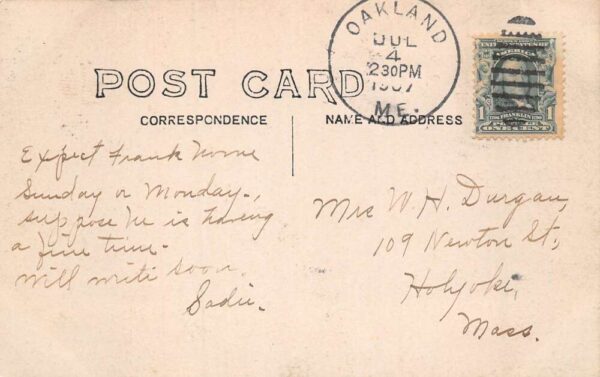 POST CARD
OAKLAND
JUL
4
230PM
1907
ME.
UNITED STATES OF
AMERICA
1
FRANKLIN
1
ONE CENT
CORRESPONDENCE
NAME AND ADDRESS
Expect Frank home
Sunday or Monday.,
suppose he is having
a fine time.
will write soon.
Sadie.
Mrs W. H. Durgan,
109 Newton St.,
Holyoke,
Mass.